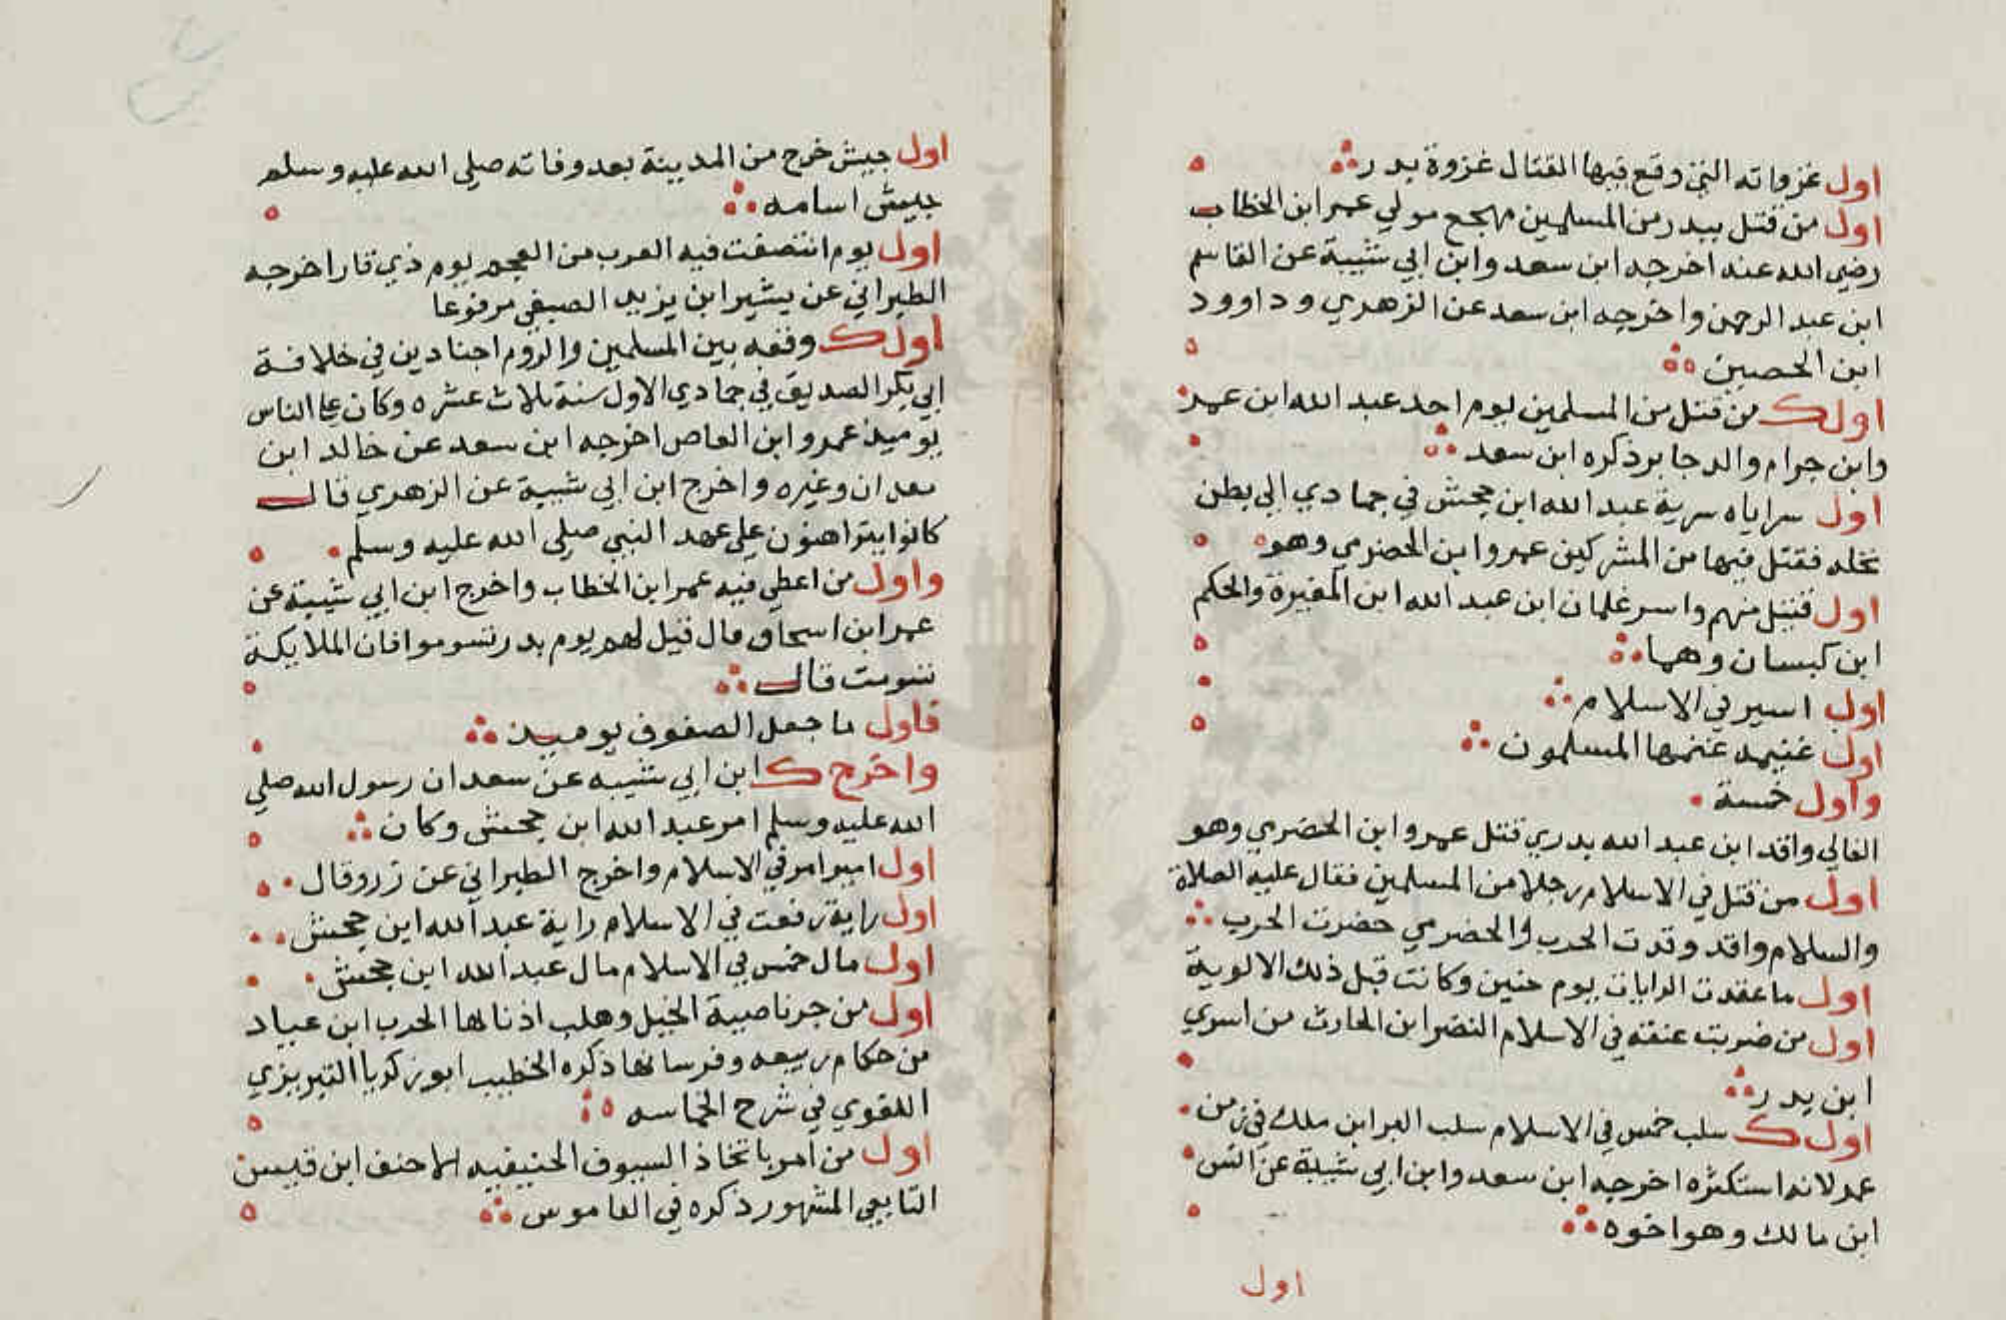 اول غزواته التي وقع فيها القتال غزوة بدر
اول من قتل ببدر من المسلمين مهجع مولي عمر ابن الخطاب
رضي الله عنه اخرجه ابن سعد وابن ابي شيبة عن القاسم
ابن عبد الرحمن واخرجه ابن سعد عن الزهري وداوود
ابن الحصين
اول من قتل من المسلمين يوم احد عبد الله ابن عمر
وابن حرام والد جابر ذكره ابن سعد
اول سراياه سرية عبد الله ابن جحش في جمادي الي بطن
نخله فقتل فيها من المشركين عمرو ابن الحضرمي وهو
اول قتيل منهم واسر غلمان ابن عبد الله ابن المغيرة والحكم
ابن كيسان وهما
اول اسير في الاسلام
اول غنيمه غنمها المسلمون
واول خمسة
الغالي واقد ابن عبد الله بدري قتل عمرو ابن الحضرمي وهو
اول من قتل في الاسلام رجلا من المسلمين فقال عليه الصلاة
والسلام واقد وقدت الحرب والحضرمي حضرت الحرب
اول ما عقدت الرايات يوم حنين وكانت قبل ذلك الالوية
اول من ضربت عنقه في الاسلام النضر ابن الحارث من اسري
ابن بدر
اول سلب خمس في الاسلام سلب البر ابن ملك في زمن
عمر لانه استكثره اخرجه ابن سعد وابن ابي شيبة عن انس
ابن مالك وهو اخوه
اول
اول جيش خرج من المدينة بعد وفاته صلي الله عليه وسلم
جيش اسامه
اول يوم انتصفت فيه العرب من العجم يوم ذي قار اخرجه
الطبراني عن بشير ابن يزيد الضبعي مرفوعا
اول وقفه بين المسلمين والروم اجنادين في خلافة
ابي بكر الصديق في جمادي الاول سنة ثلاث عشره وكان علي الناس
يوميذ عمرو ابن العاص اخرجه ابن سعد عن خالد ابن
معدان وغيره واخرج ابن ابي شيبة عن الزهري قال
كانوا يتراهنون علي عهد النبي صلي الله عليه وسلم
واول من اعطي فيه عمر ابن الخطاب واخرج ابن ابي شيبة عن
عمر ابن اسحاق قال قيل لهم يوم بدر تسوموا فان الملايكة
تسومت قال
فاول ما جعل الصفوف يوميذ
واخرج ابن ابي شيبه عن سعد ان رسول الله صلي
الله عليه وسلم امر عبد الله ابن جحش وكان
اول امير امر في الاسلام واخرج الطبراني عن زر وقال
اول راية رفعت في الاسلام راية عبد الله ابن جحش
اول مال خمس في الاسلام مال عبد الله ابن جحش
اول من جر ناصية الخيل وهلب اذنابها الحرب ابن عباد
من حكام ربيعه وفرسانها ذكره الخطيب ابو زكريا التبريزي
اللغوي في شرح الحماسه
اول من امر باتخاذ السيوف الحنيفيه الاحنف ابن قيس
التابعي المشهور ذكره في القاموس